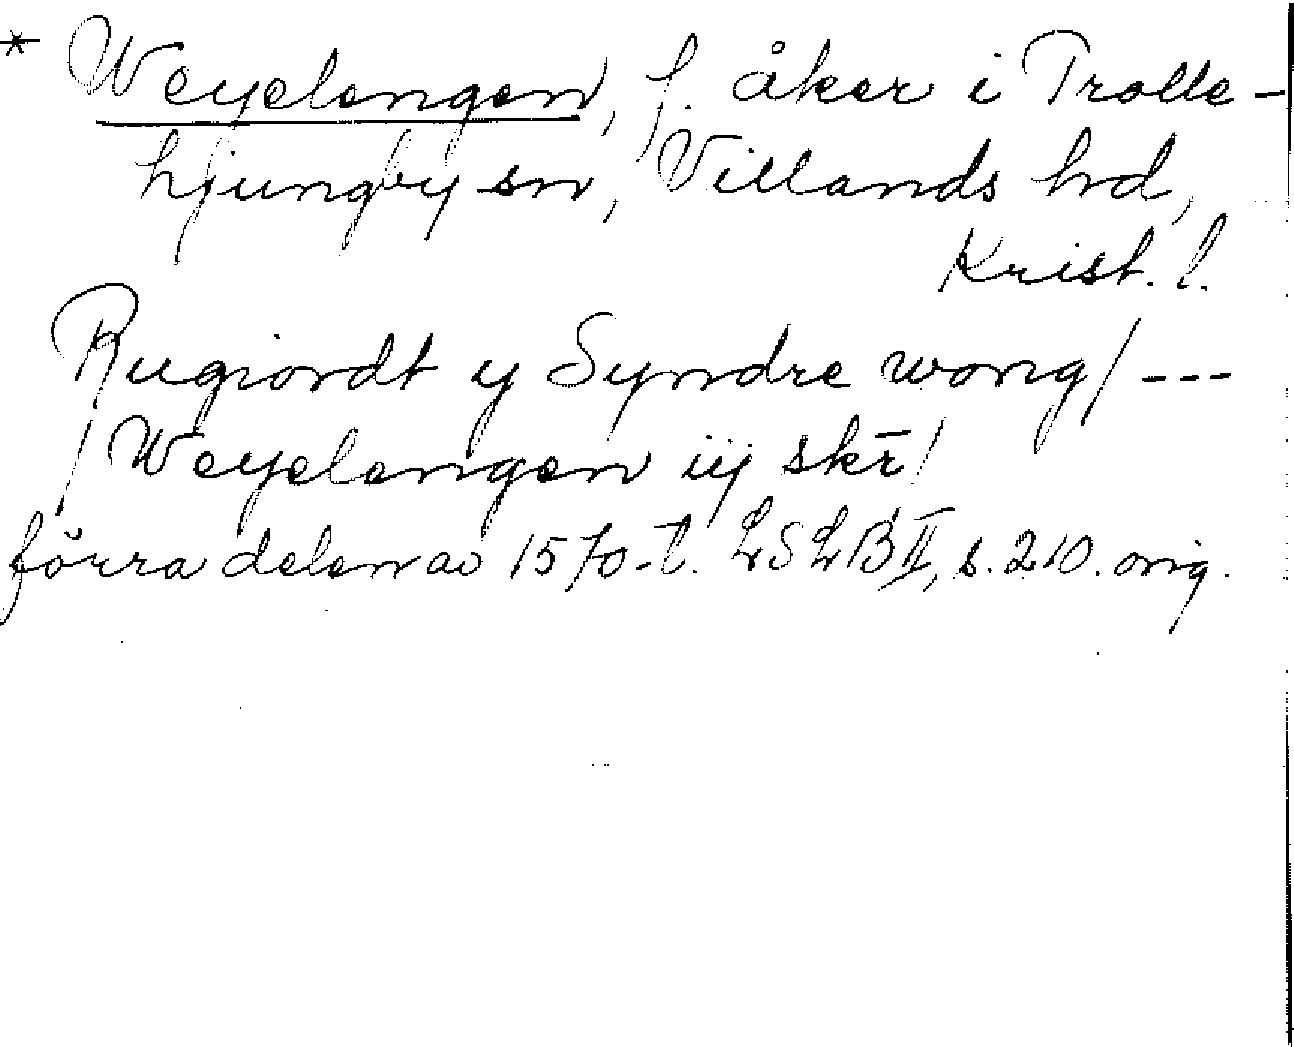 * Weyelengen, f. åker i Trolle-
hjungby sn, Villands hd,
Krist. l.
Rugiordt y Syndre wong/ ---
/ Weyelengen iij skr̄ /
förra delen av 1570-t. LSLB II, s. 210. orig.